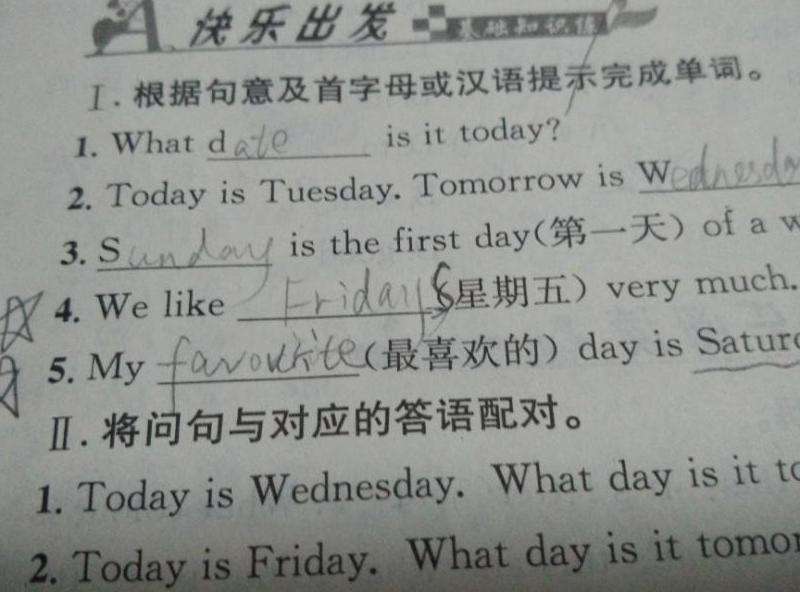 A 快乐出发 基础知识练
Ⅰ.根据句意及首字母或汉语提示完成单词。
1. What date is it today?
2. Today is Tuesday. Tomorrow is Wednesday
3. Sunday is the first day(第一天) of a w
4. We like Fridays(星期五) very much.
5. My favourite(最喜欢的) day is Satur
Ⅱ.将问句与对应的答语配对。
1. Today is Wednesday. What day is it to
2. Today is Friday. What day is it tomor